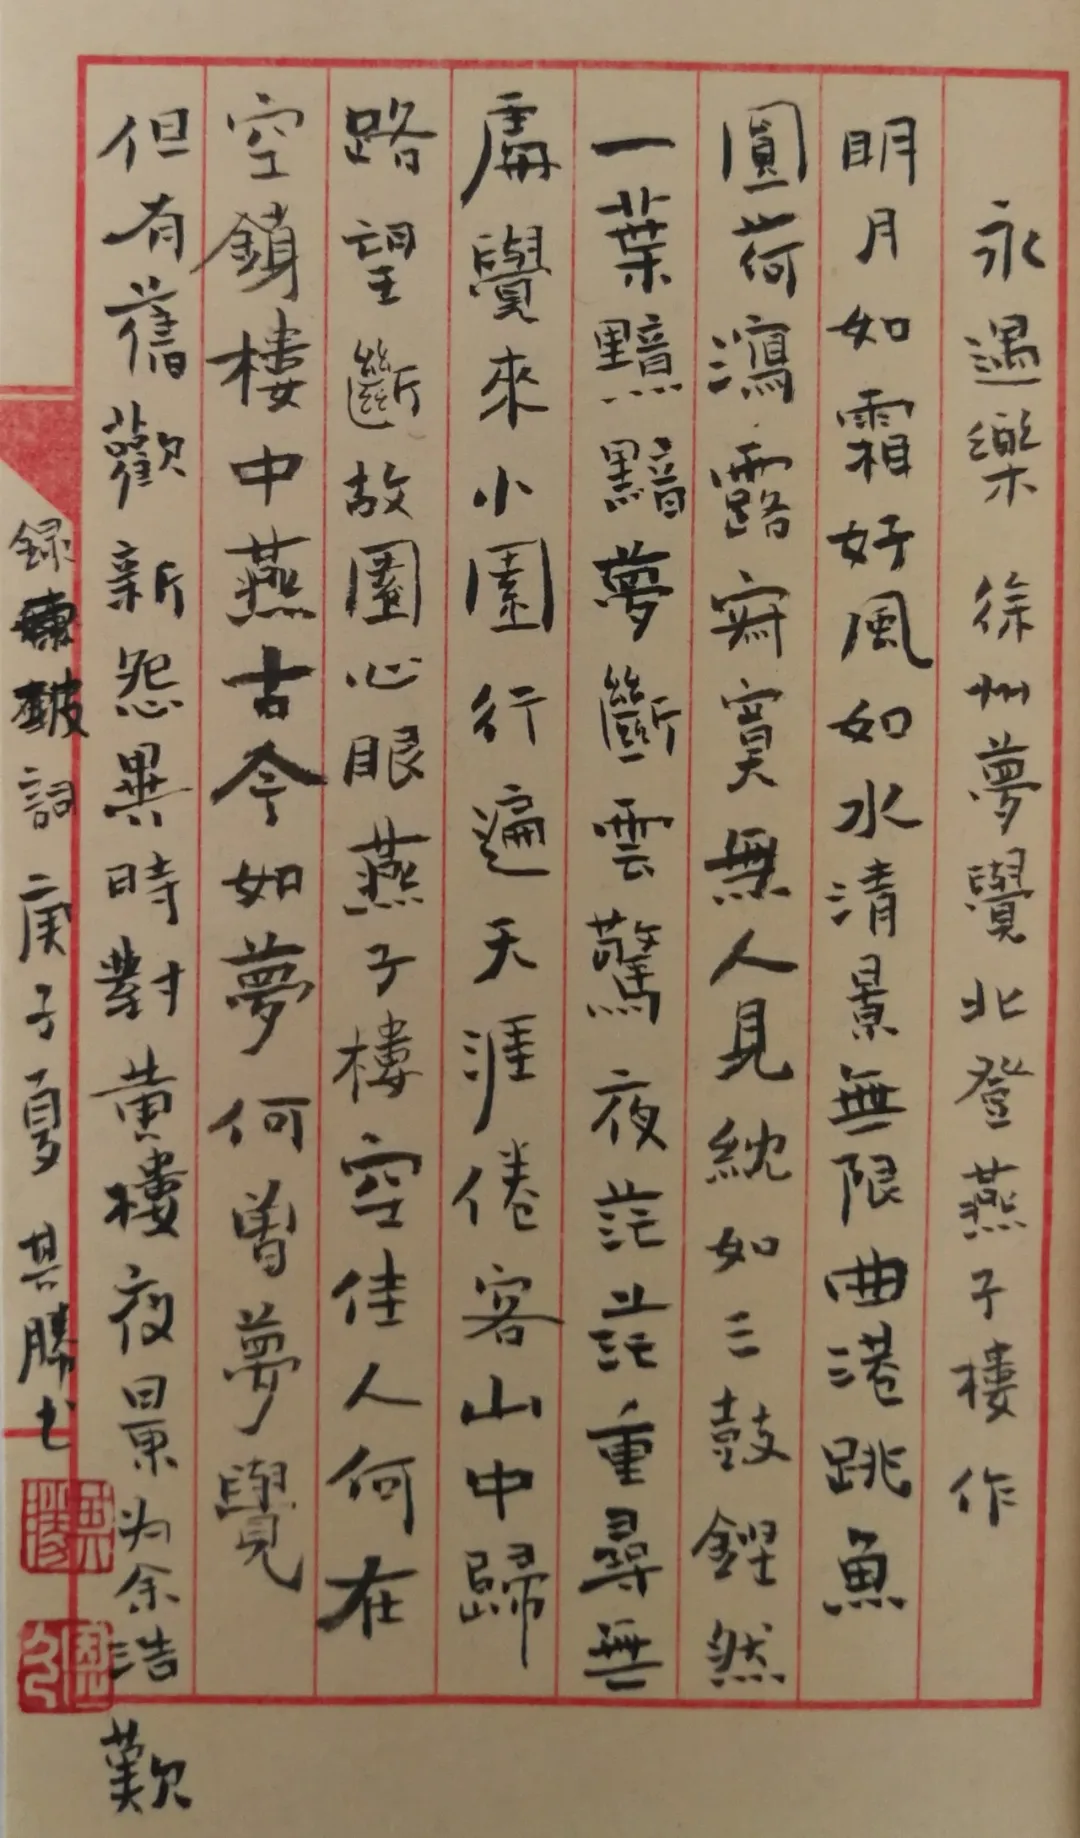 永遇樂 徐州夢覺北登燕子樓作
明月如霜好風如水清景無限曲港跳魚
圓荷瀉露寂寞無人見紞如三鼓鏗然
一葉黯黯夢斷雲驚夜茫茫重尋無
處覺來小園行遍天涯倦客山中歸
路望斷故園心眼燕子樓空佳人何在
空鎖樓中燕古今如夢何曾夢覺
但有舊歡新怨異時對黃樓夜景为余浩
歎
録 詞庚子夏 其勝书